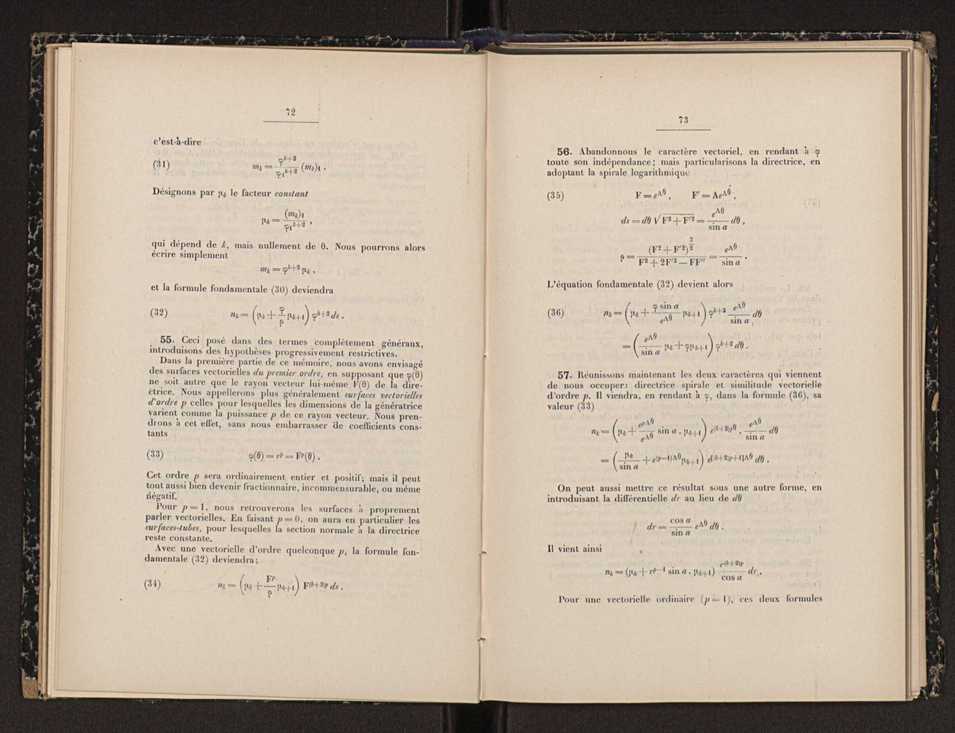 72
c'est-à-dire
(31) m_k = φ^{k+2} / φ_1^{k+2} (m_k)_1 .
Désignons par μ_k le facteur constant
μ_k = (m_k)_1 / φ_1^{k+2} ,
qui dépend de k, mais nullement de θ. Nous pourrons alors
écrire simplement
m_k = φ^{k+2} μ_k ,
et la formule fondamentale (30) deviendra
(32) n_k = (μ_k + φ/ρ μ_{k+1}) φ^{k+2} ds .
55. Ceci posé dans des termes complètement généraux,
introduisons des hypothèses progressivement restrictives.
Dans la première partie de ce mémoire, nous avons envisagé
des surfaces vectorielles du premier ordre, en supposant que φ(θ)
ne soit autre que le rayon vecteur lui-même F(θ) de la dire-
ctrice. Nous appellerons plus généralement surfaces vectorielles
d'ordre p celles pour lesquelles les dimensions de la génératrice
varient comme la puissance p de ce rayon vecteur. Nous pren-
drons à cet effet, sans nous embarrasser de coefficients cons-
tants
(33) φ(θ) = r^p = F^p(θ) .
Cet ordre p sera ordinairement entier et positif; mais il peut
tout aussi bien devenir fractionnaire, incommensurable, ou même
négatif.
Pour p = 1, nous retrouverons les surfaces à proprement
parler vectorielles. En faisant p = 0, on aura en particulier les
surfaces-tubes, pour lesquelles la section normale à la directrice
reste constante.
Avec une vectorielle d'ordre quelconque p, la formule fon-
damentale (32) deviendra:
(34) n_k = (μ_k + F^p/ρ μ_{k+1}) F^{(k+2)p} ds .
73
56. Abandonnous le caractère vectoriel, en rendant à φ
toute son indépendance; mais particularisons la directrice, en
adoptant la spirale logarithmique
(35) F = e^{Aθ} , F' = Ae^{Aθ} ,
ds = dθ √(F² + F'²) = e^{Aθ} / sin a dθ ,
ρ = (F² + F'²)^{3/2} / (F² + 2F'² — FF'') = e^{Aθ} / sin a .
L'équation fondamentale (32) devient alors
(36) n_k = (μ_k + φ sin a / e^{Aθ} μ_{k+1}) φ^{k+2} e^{Aθ} / sin a dθ
= (e^{Aθ} / sin a μ_k + φμ_{k+1}) φ^{k+2} dθ .
57. Réunissons maintenant les deux caractères qui viennent
de nous occuper: directrice spirale et similitude vectorielle
d'ordre p. Il viendra, en rendant à φ, dans la formule (36), sa
valeur (33)
n_k = (μ_k + e^{pAθ} / e^{Aθ} sin a . μ_{k+1}) e^{(k+2)pAθ} . e^{Aθ} / sin a dθ
= (μ_k / sin a + e^{(p—1)Aθ} μ_{k+1}) e^{[(k+2)p+1]Aθ} dθ .
On peut aussi mettre ce résultat sous une autre forme, en
introduisant la différentielle dr au lieu de dθ
dr = cos a / sin a e^{Aθ} dθ .
Il vient ainsi
n_k = (μ_k + r^{p—1} sin a . μ_{k+1}) r^{(k+2)p} / cos a dr .
Pour une vectorielle ordinaire (p = 1), ces deux formules